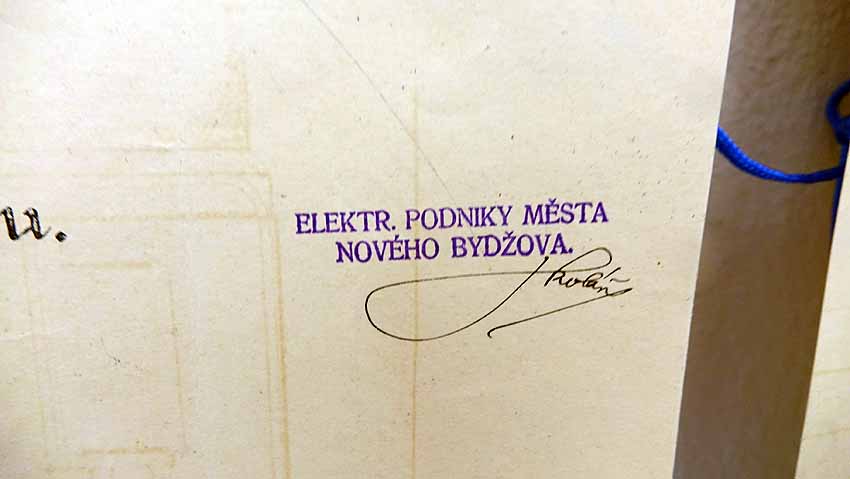 u.
ELEKTR. PODNIKY MĚSTA
NOVÉHO BYDŽOVA.